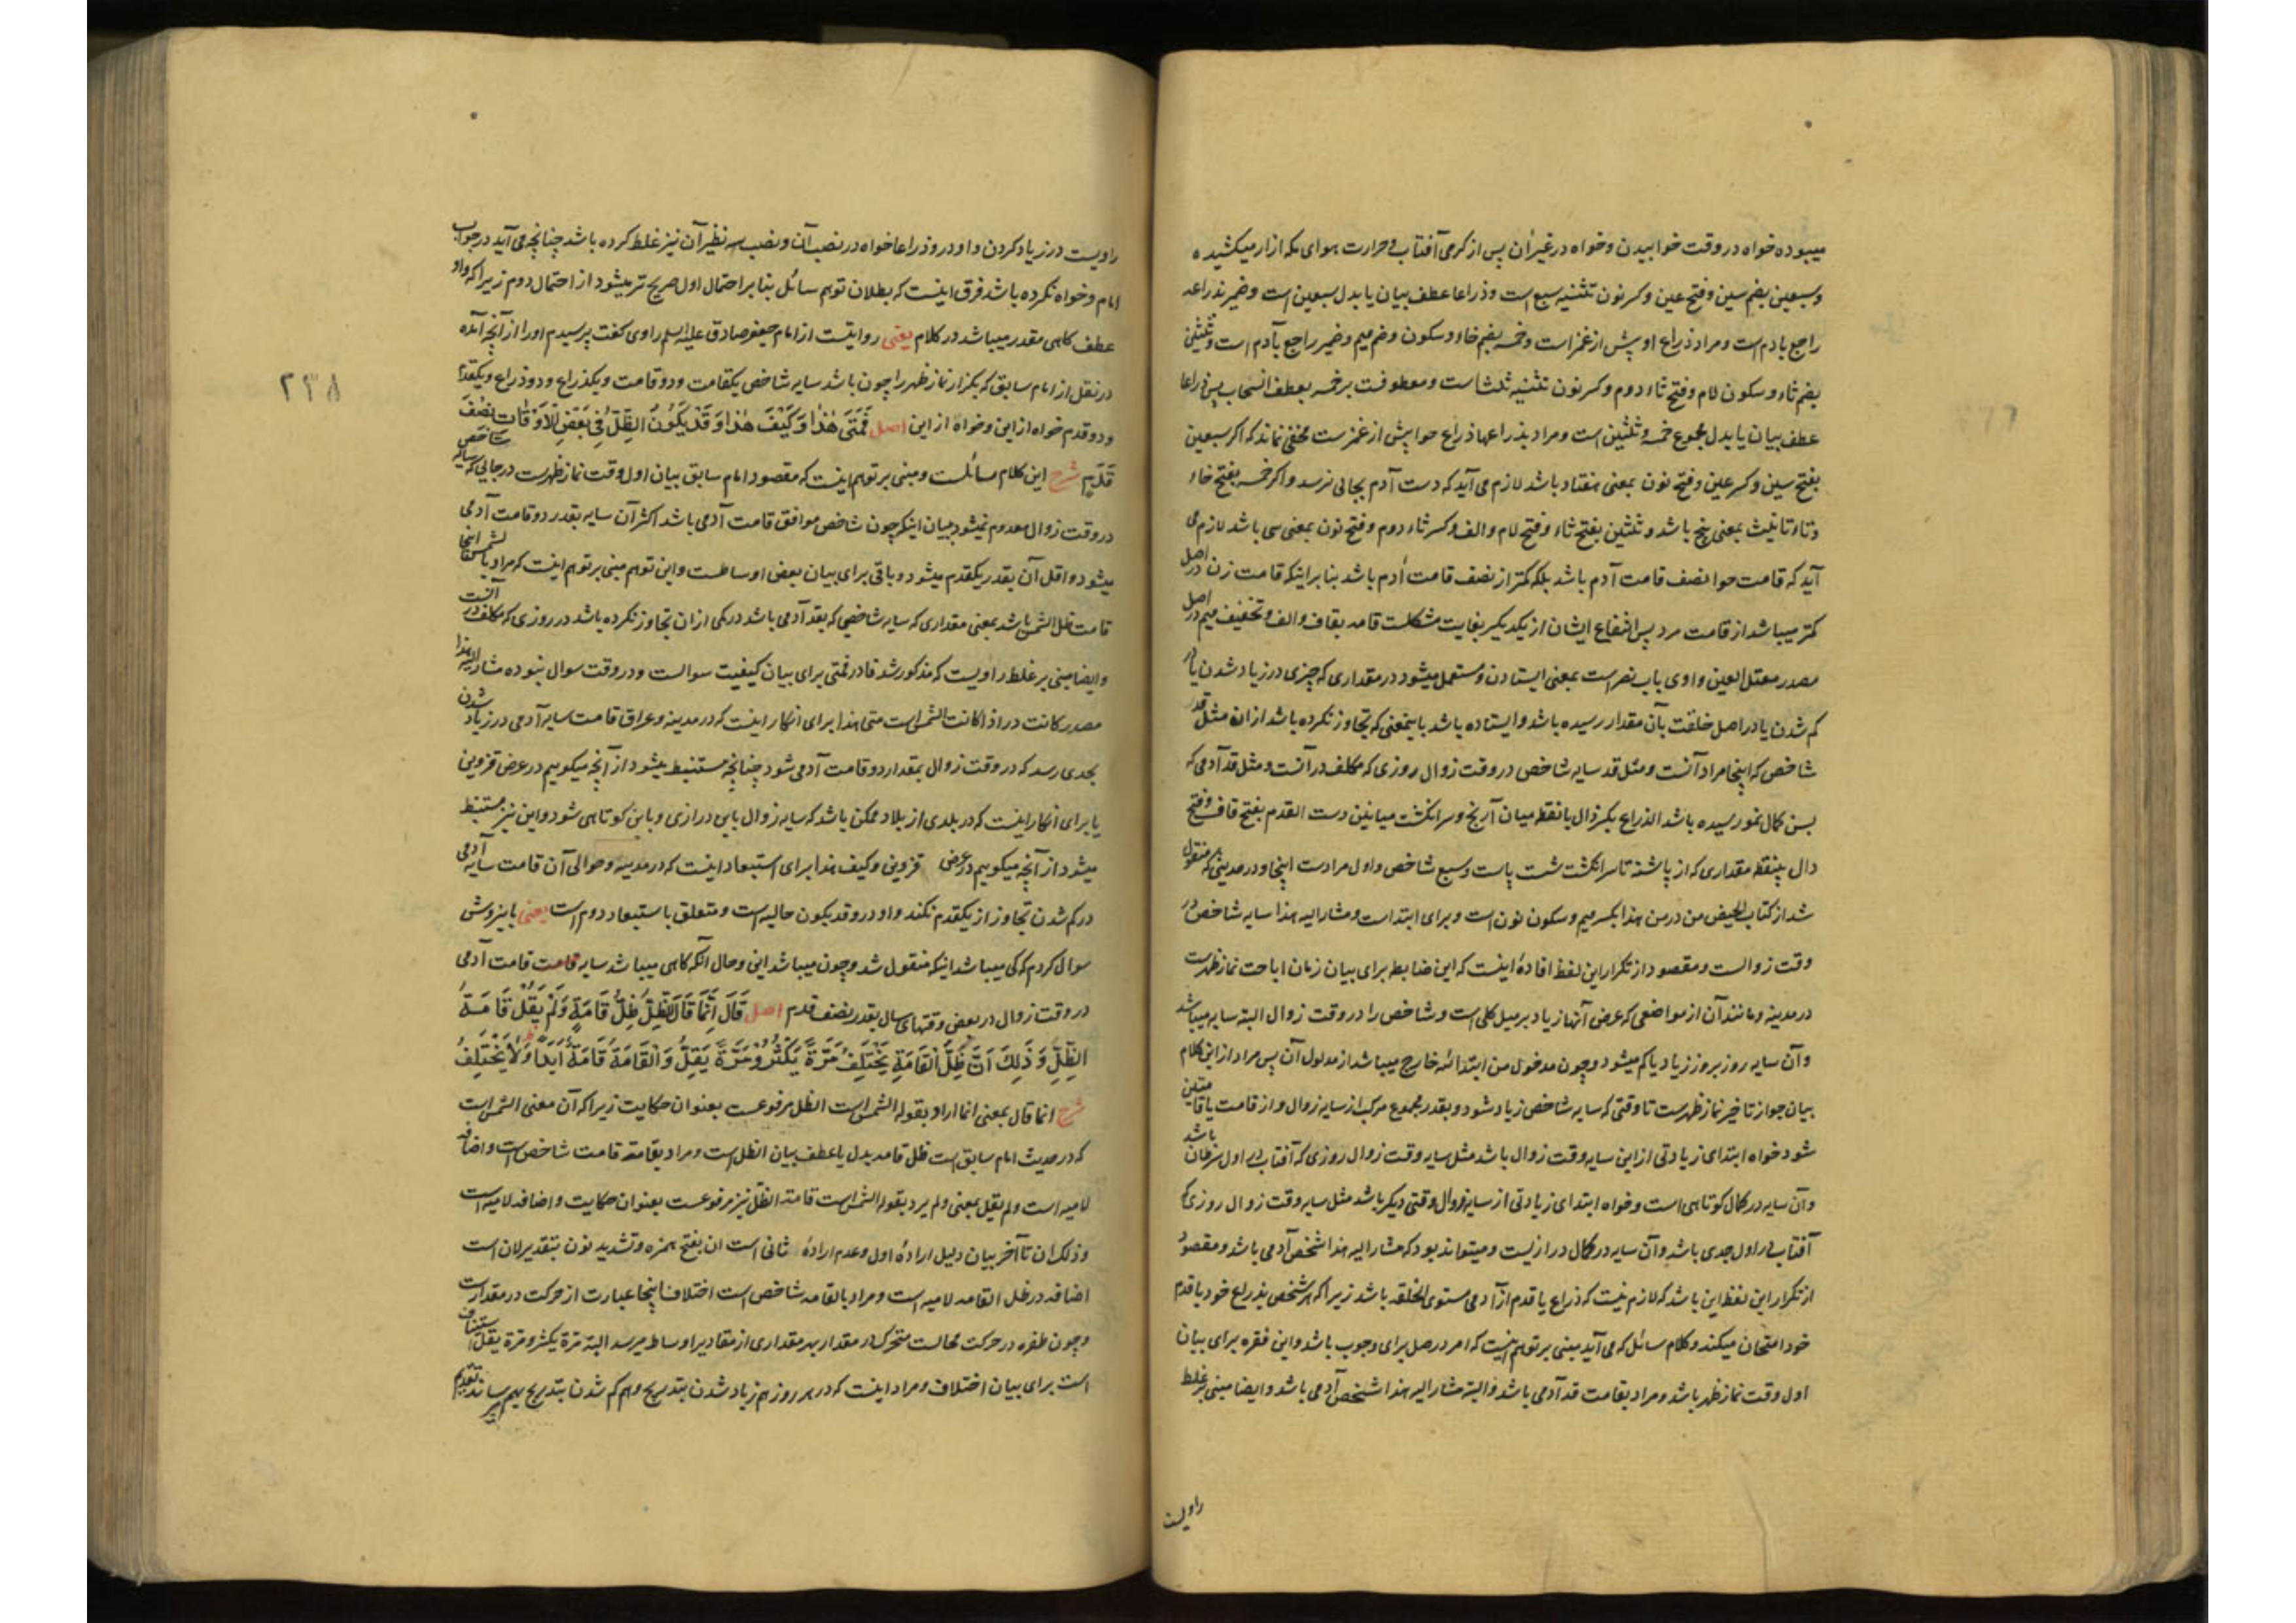 میبوده خواه در وقت خوابیدن و خواه در غیر آن پس از گرمی آفتاب و حرارت هوای مکه ازار میکشیده
و سبعین بضم سین و فتح عین و کسر نون تثنیه سبع است و ذراعا عطف بیان یا بدل سبعین است و ضمیر بذراعه
راجع بادم است و مراد ذراع او پیش از غمز است و خمسه بضم خاء و سکون و ضم میم و ضمیر راجع بآدم است و ثلثین
بضم ثاء و سکون لام و فتح ثاء دوم و کسر نون تثنیه ثلثا ست و معطوفست بر خمسه بعطف انسحاب پس ذراعا
عطف بیان یا بدل مجموع خمسه و ثلثین است و مراد بذراعها ذراع حوا پیش از غمز ست مخفی نماند که اگر سبعین
بفتح سین و کسر عین و فتح نون بمعنی هفتاد باشد لازم می آید که دست آدم بجائی نرسد و اگر خمسه بفتح خاء
و تاء تانیث بمعنی پنج باشد و ثلثین بفتح ثاء و فتح لام و الف و کسر ثاء دوم و فتح نون بمعنی سی باشد لازم می
آید که قامت حوا نصف قامت آدم باشد بلکه کمتر از نصف قامت آدم باشد بنا بر اینکه قامت زن در اصل
کمتر میباشد از قامت مرد پس انتفاع ایشان از یکدیگر بغایت مشکلست قامه بقاف و الف و تخفیف میم در اصل
مصدر معتل العین واوی باب نصر است بمعنی ایستادن و مستعمل میشود در مقداری که چیزی در زیاد شدن یا در
کم شدن یا در اصل خلقت بآن مقدار رسیده باشد و ایستاده باشد باینمعنی که تجاوز نکرده باشد ازان مثل قد
شاخص که اینجا مراد آنست و مثل قد سایه شاخص در وقت زوال روزی که مکلف در آنست و مثل قد آدمی که
بسن کمال نمو رسیده باشد الذراع بکسر ذال بانقطه میان آرنج و سر انگشت میانین دست القدم بفتح قاف و فتح
دال بینقطه مقداری که از پاشنه تا سر انگشت شست پاست و سبع شاخص و اول مرادست اینجا و در حدیثی که منقول
شد از کتاب الحیض من در من هذا بکسر میم و سکون نون است و برای ابتداست و مشار الیه هذا سایه شاخص در
وقت زوالست و مقصود از تکرار این لفظ افادهٔ اینست که این ضابطه برای بیان زمان اباحت نماز ظهرست
در مدینه و مانند آن از مواضعی که عرض آنها زیاد بر میل کلی است و شاخص را در وقت زوال البته سایه میباشد
و آن سایه روز بروز زیاد یا کم میشود و چون مدخول من ابتدائیه خارج میباشد از مدلول آن پس مراد از این کلام
بیان جواز تاخیر نماز ظهرست تا وقتی که سایه شاخص زیاد شود و بقدر مجموع مرکب از سایه زوال و از قامت یا قامتین
شود خواه ابتدای زیادتی از این سایه وقت زوال باشد مثل سایه وقت زوال روزی که آفتاب در اول سرطان باشد
و آن سایه در کمال کوتاهی است و خواه ابتدای زیادتی از سایه زوال وقتی دیگر باشد مثل سایه وقت زوال روزی که
آفتاب در اول جدی باشد و آن سایه در کمال درازیست و میتواند بود که مشار الیه هذا شخص آدمی باشد و مقصود
از تکرار این لفظ این باشد که لازم نیست که ذراع یا قدم از آدمی مستوی الخلقه باشد زیرا که هر شخص بذراع خود یا قدم
خود امتحان میکند و کلام سائل که می آید مبنی بر توهم اینست که امر در صل برای وجوب باشد و این فقره برای بیان
اول وقت نماز ظهر باشد و مراد بقامت قد آدمی باشد و البته مشار الیه هذا شخص آدمی باشد و ایضا مبنی بر غلط
راویست
راویست در زیاد کردن واو در و ذراعا خواه در نصب آن و نصب سه نظیر آن نیز غلط کرده باشد چنانچه می آید در جواب
امام و خواه نکرده باشد فرق اینست که بطلان توهم سائل بنا بر احتمال اول صریح تر میشود از احتمال دوم زیرا که واو
عطف کاهی مقدر میباشد در کلام یعنی روایتست از امام جعفر صادق علیه السلم راوی گفت پرسیدم او را از آنچه آمده
در نقل از امام سابق که بگزار نماز ظهر را چون باشد سایه شاخص یکقامت و دو قامت و یکذراع و دو ذراع و یکقدم
و دو قدم خواه از این و خواه از این اصل فَمَتَى هٰذَا وَكَيْفَ هٰذَا وَقَدْ يَكُونُ الظِّلُّ فِي بَعْضِ الْاَوْقَاتِ نِصْفَ
قَدَمٍ شرح این کلام سائلست و مبنی بر توهم اینست که مقصود امام سابق بیان اول وقت نماز ظهرست در جائی که سایه شاخص
در وقت زوال معدوم نمیشود ببیان اینکه چون شاخص موافق قامت آدمی باشد اکثر آن سایه بقدر دو قامت آدمی
میشود و اقل آن بقدر یکقدم میشود و باقی برای بیان بعض اوساطست و این توهم مبنی بر توهم اینست که مراد بالشمس اینجا
قامت ظل الشمس باشد بمعنی مقداری که سایه شاخصی که بقد آدمی باشد در کمی ازان تجاوز نکرده باشد در روزی که مکلف در آنست
و ایضا مبنی بر غلط راویست که مذکور شد فا در فمتی برای بیان کیفیت سوالست و در وقت سوال نبوده مشار الیه هذا
مصدر کانت در اذا کانت الشمس است متی هذا برای انکار اینست که در مدینه و عراق قامت سایه آدمی در زیاد شدن
بحدی رسد که در وقت زوال بمقدار دو قامت آدمی شود چنانچه مستنبط میشود از آنچه میکوییم در عرض قزوین
یا برای انکار اینست که در بلدی از بلاد ممکن باشد که سایه زوال باین درازی و باین کوتاهی شود و این نیز مستنبط
میشود از آنچه میکوییم در عرض قزوین و کیف هذا برای استبعاد اینست که در مدینه و حوالی آن قامت سایه آدمی
در کم شدن تجاوز از یکقدم نکند واو در و قد یکون حالیه است و متعلق باستبعاد دوم است یعنی باینروش
سوال کردم که کی میباشد اینکه منقول شد و چون میباشد این و حال آنکه کاهی میباشد سایه قامت قامت آدمی
در وقت زوال در بعض وقتهای سال بقدر نصف قدم اصل قَالَ اِنَّمَا قَالَ الظِّلُّ ظِلُّ قَامَةٍ وَلَمْ يَقُلْ قَامَةُ
الظِّلِّ وَذٰلِكَ اَنَّ ظِلَّ الْقَامَةِ يَخْتَلِفُ مَرَّةً يَكْثُرُ وَمَرَّةً يَقِلُّ وَالْقَامَةُ قَامَةٌ اَبَدًا وَلَا يَخْتَلِفُ
شرح انما قال بمعنی انما اراد بقوله الشمس است الظل مرفوعست بعنوان حکایت زیرا که آن معنی الشمس است
که در حدیث امام سابق است ظل قامه بدل یا عطف بیان الظل است و مراد بقامة قامت شاخص است و اضافه
لامیه است و لم یقل بمعنی و لم یرد بقوله الشمس است قامة الظل نیز مرفوعست بعنوان حکایت و اضافه لامیه است
و ذلک ان تا آخر بیان دلیل ارادهٔ اول و عدم ارادهٔ ثانی است ان بفتح همزه و تشدید نون بتقدیر لان است
اضافه در ظل القامه لامیه است و مراد بالقامه شاخص است اختلاف اینجا عبارت از حرکت در مقدارست
و چون طفره در حرکت محالست متحرک در مقدار بهر مقداری از مقادیر اوساط میرسد البته مرة یکثر و مرة یقل استیناف
است برای بیان اختلاف و مراد اینست که در هر روز هم زیاد شدن بتدریج و هم کم شدن بتدریج بهم میرساند
۲۳۸